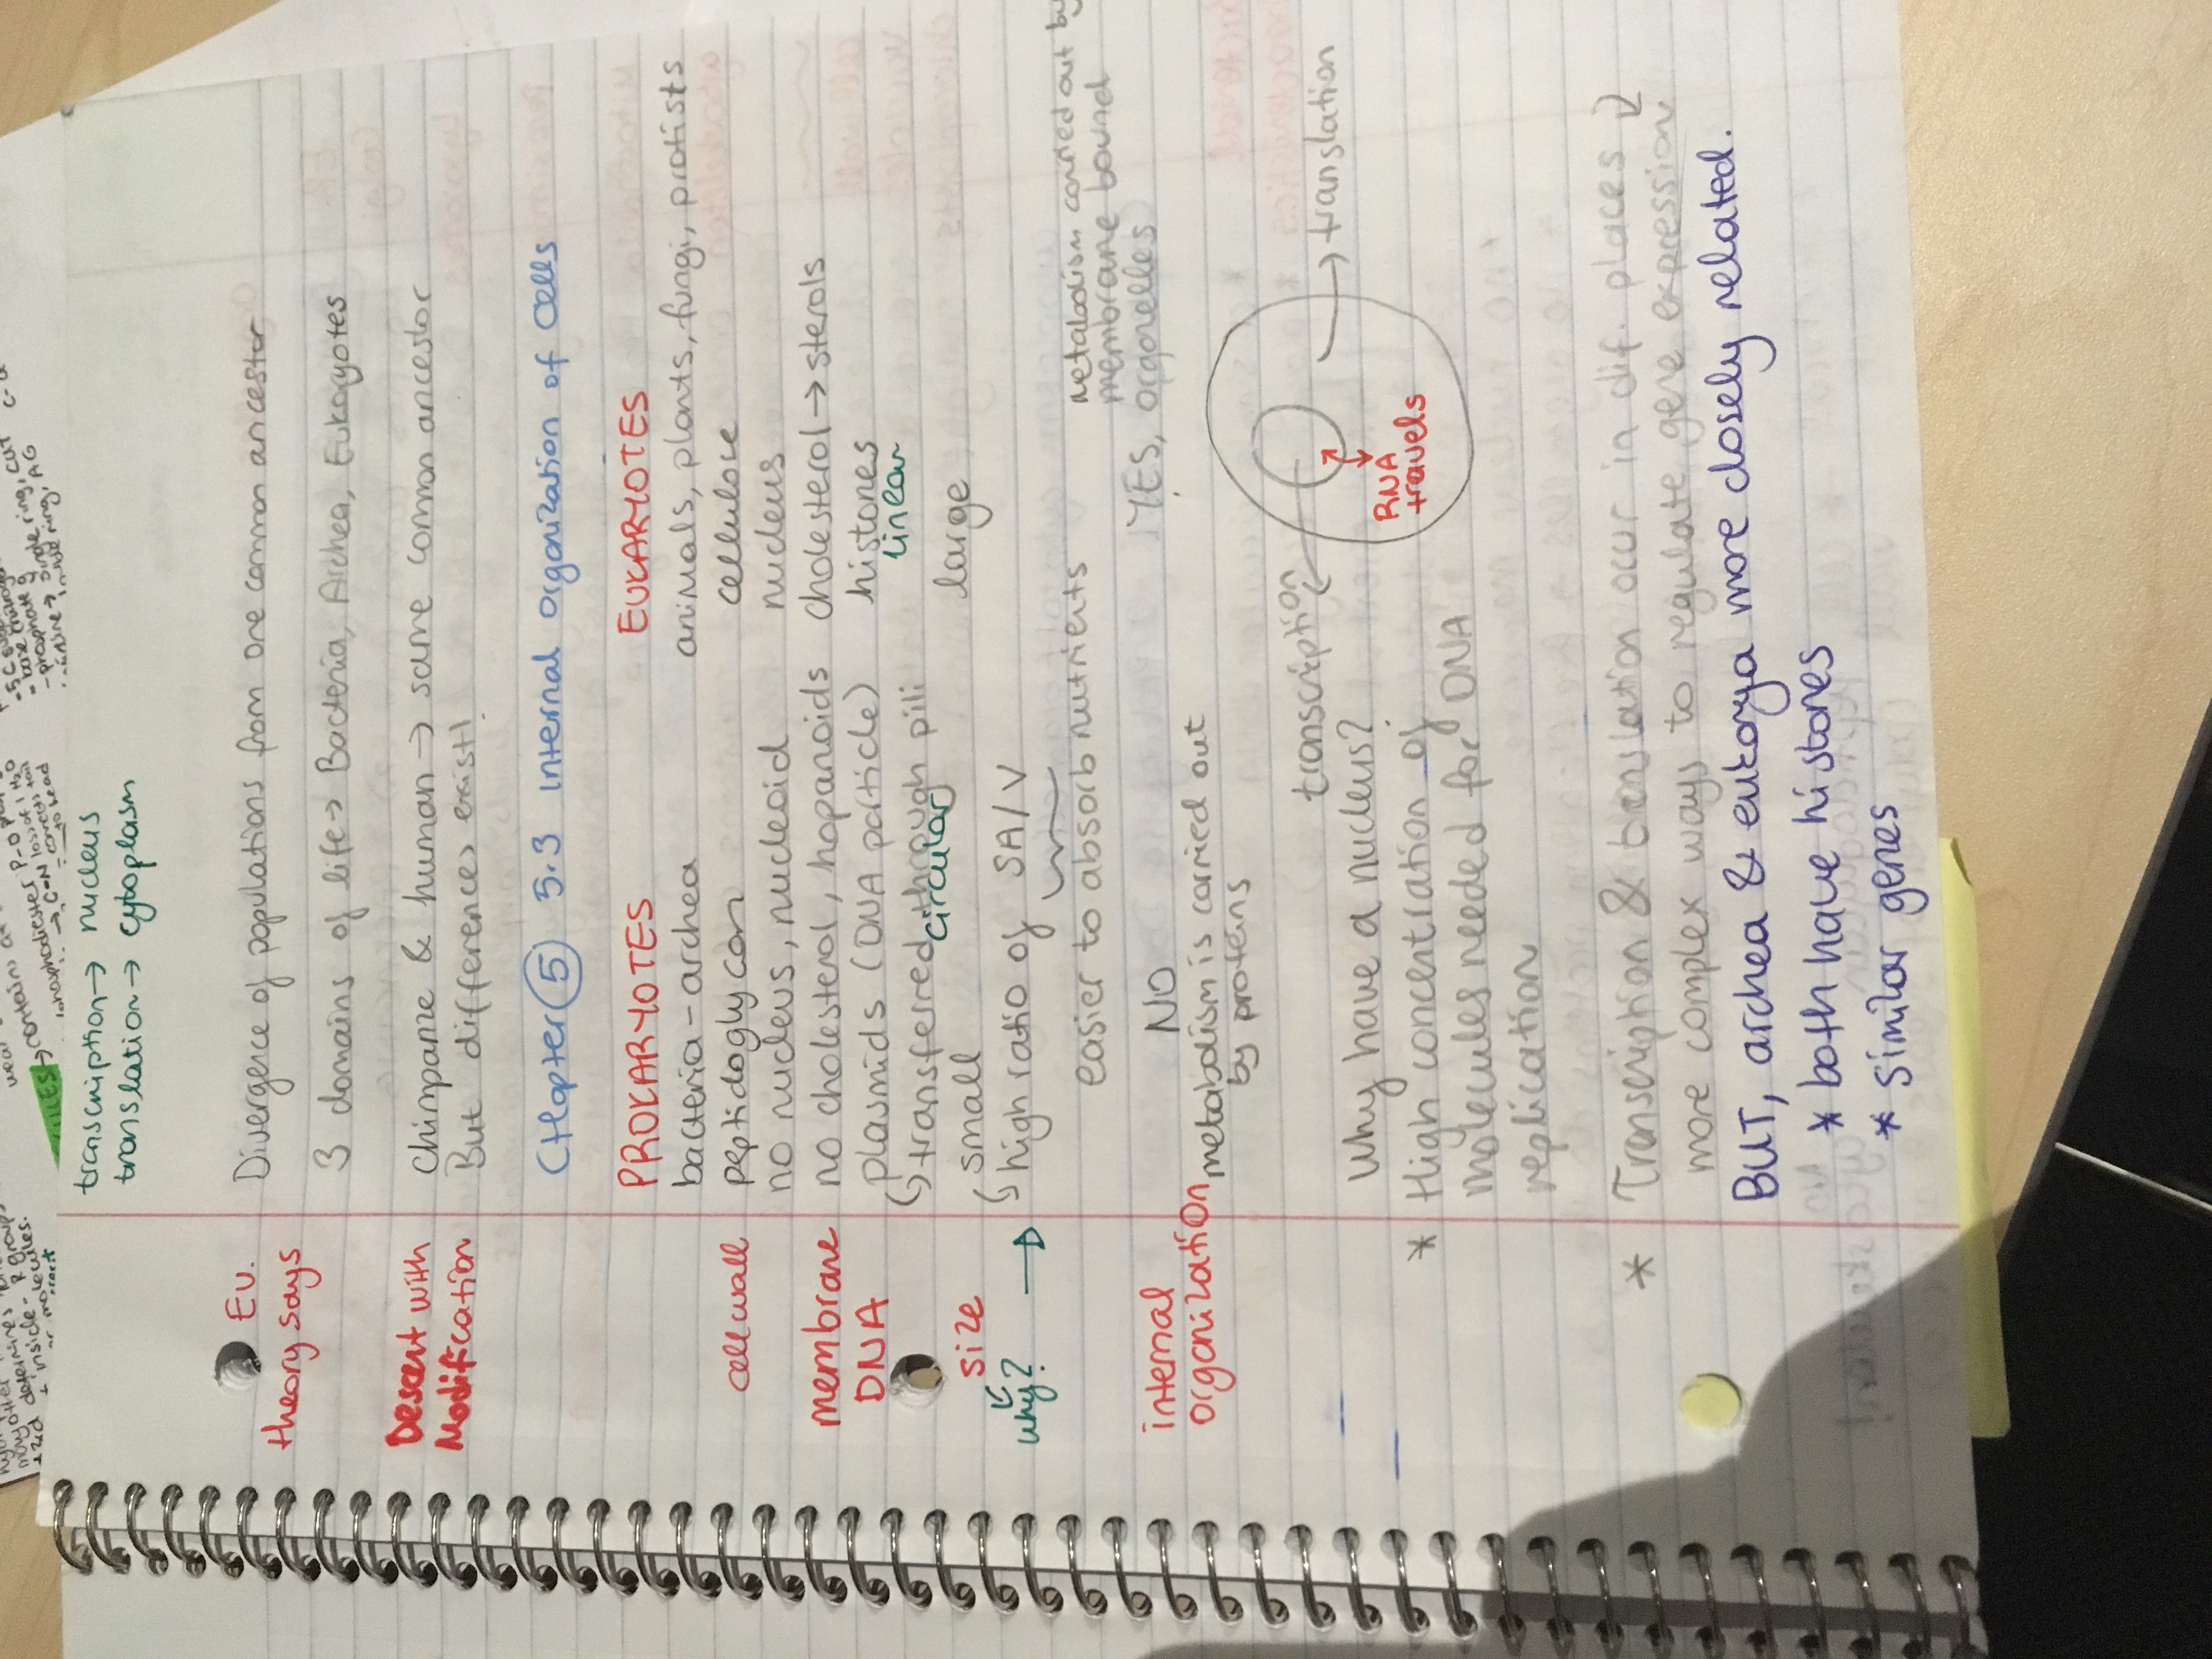 transcription → nucleus
translation → cytoplasm
Ev. theory says
Divergence of populations from one common ancestor
3 domains of life → Bacteria, Archea, Eukaryotes
Descent with
Modification
Chimpanze & human → same common ancestor
But differences exist!
CHapter 5 5.3 internal organization of cells
PROKARYOTES EUKARYOTES
bacteria - archea animals, plants, fungi, protists
cell wall peptidoglycan cellulose
no nucleus, nucleoid nucleus
membrane no cholesterol, hopanoids cholesterol → sterols
DNA plasmids (DNA particle) histones
↳ transferred through pili linear
circular
size small large
why? → ↳ high ratio of SA/V
easier to absorb nutrients
metabolism carried out by
membrane bound
internal NO YES, organelles
organization metabolism is carried out
by proteins
transcription
translation
RNA
travels
Why have a nucleus?
* High concentration of
molecules needed for DNA
replication
* Transcription & translation ocur in dif. places
more complex ways to regulate gene expression
BUT, archea & eukarya more closely related.
* both have histones
* similar genes